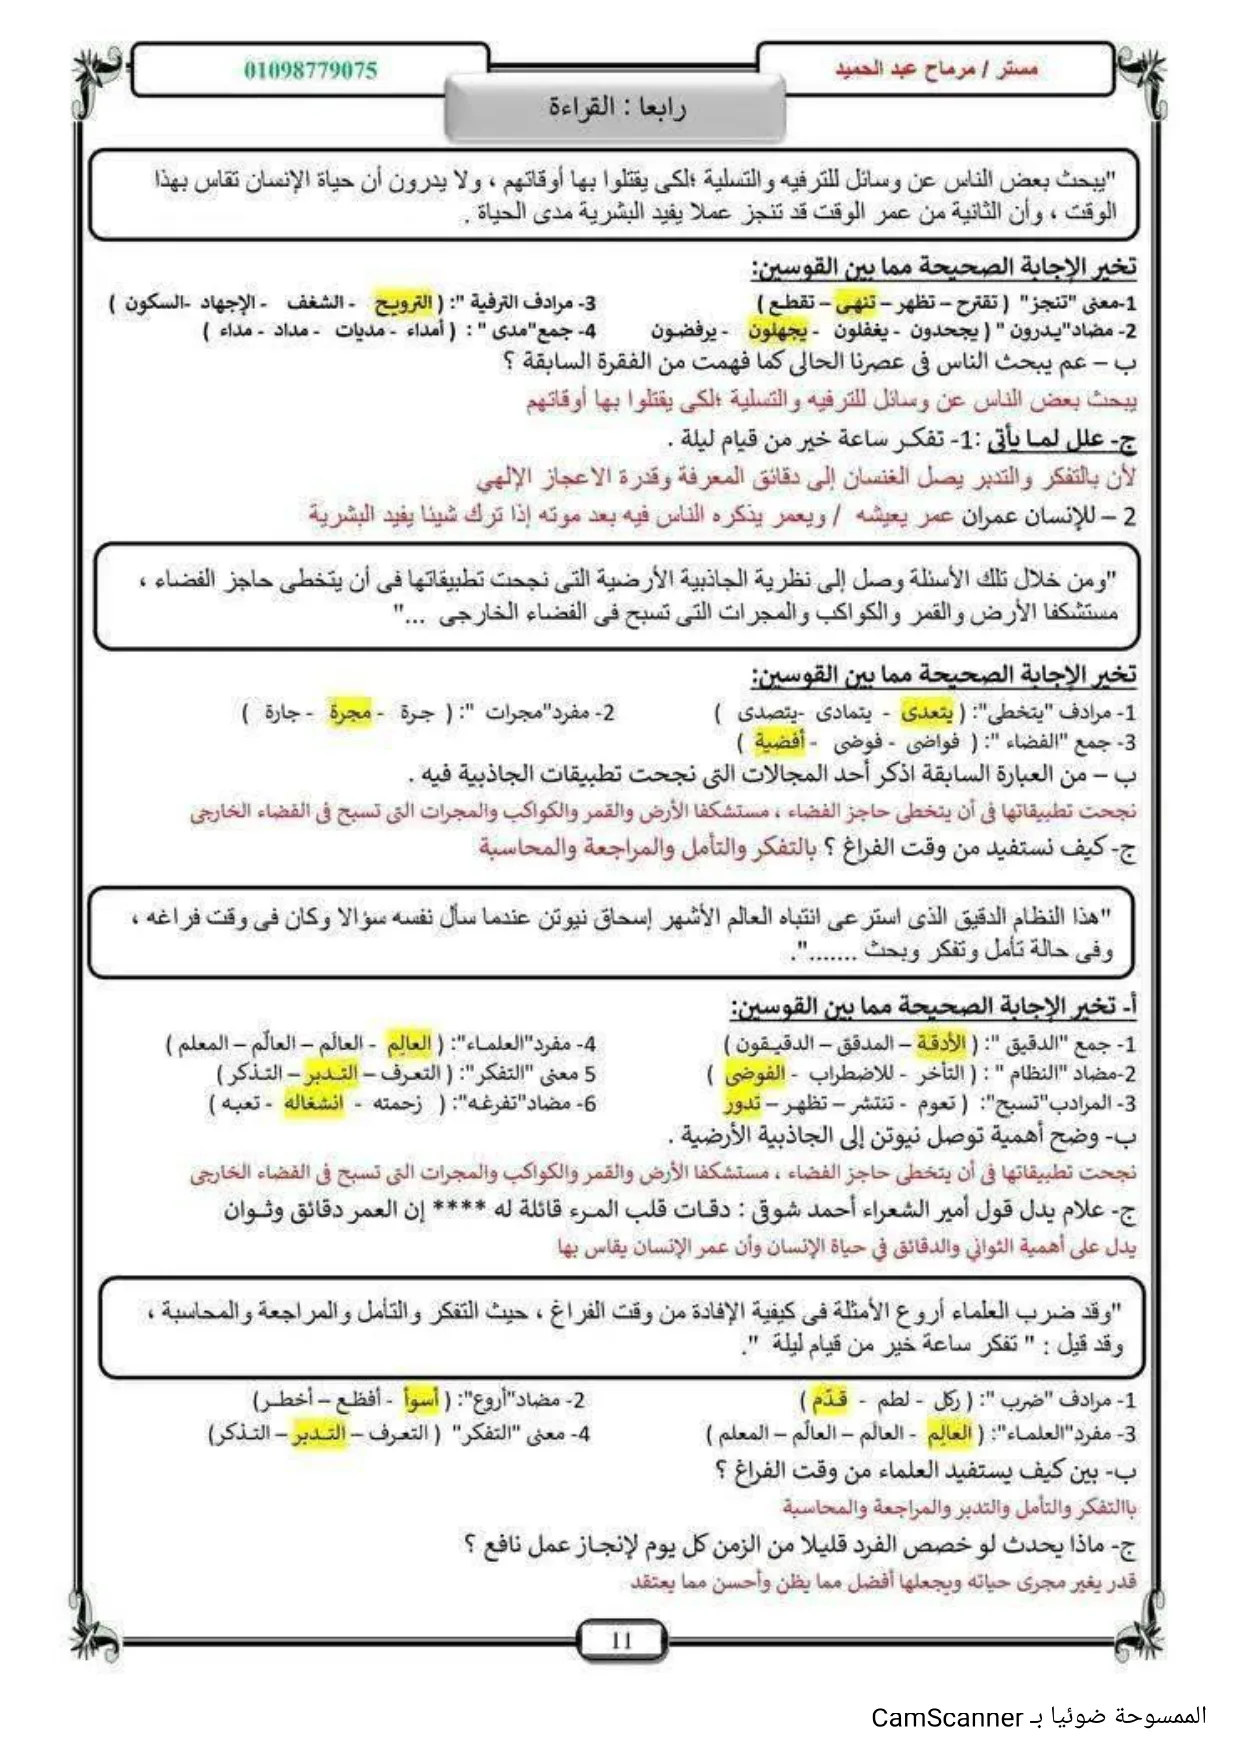 مستر / مرماح عبد الحميد
01098779075
رابعا : القراءة
"يبحث بعض الناس عن وسائل للترفيه والتسلية ؛لكى يقتلوا بها أوقاتهم ، ولا يدرون أن حياة الإنسان تقاس بهذا
الوقت ، وأن الثانية من عمر الوقت قد تنجز عملا يفيد البشرية مدى الحياة .
تخير الإجابة الصحيحة مما بين القوسين:
1-معنى "تنجز" ( تقترح – تظهر – تنهى – تقطع )
3- مرادف الترفية ": ( الترويح - الشغف - الإجهاد -السكون )
2- مضاد"يدرون " ( يجحدون - يغفلون - يجهلون - يرفضون
4- جمع"مدى " : ( أمداء - مديات - مداد - مداء )
ب – عم يبحث الناس فى عصرنا الحالى كما فهمت من الفقرة السابقة ؟
يبحث بعض الناس عن وسائل للترفيه والتسلية ؛لكى يقتلوا بها أوقاتهم
ج- علل لما يأتى :1- تفكر ساعة خير من قيام ليلة .
لأن بالتفكر والتدبر يصل الغنسان إلى دقائق المعرفة وقدرة الاعجاز الإلهي
2 – للإنسان عمران عمر يعيشه / ويعمر يذكره الناس فيه بعد موته إذا ترك شيئا يفيد البشرية
"ومن خلال تلك الأسئلة وصل إلى نظرية الجاذبية الأرضية التى نجحت تطبيقاتها فى أن يتخطى حاجز الفضاء ،
مستشكفا الأرض والقمر والكواكب والمجرات التى تسبح فى الفضاء الخارجى ..."
تخير الإجابة الصحيحة مما بين القوسين:
1- مرادف "يتخطى": ( يتعدى - يتمادى -يتصدى )
2- مفرد"مجرات ": ( جرة - مجرة - جارة )
3- جمع "الفضاء ": ( فواضى - فوضى - أفضية )
ب – من العبارة السابقة اذكر أحد المجالات التى نجحت تطبيقات الجاذبية فيه .
نجحت تطبيقاتها فى أن يتخطى حاجز الفضاء ، مستشكفا الأرض والقمر والكواكب والمجرات التى تسبح فى الفضاء الخارجى
ج- كيف نستفيد من وقت الفراغ ؟ بالتفكر والتأمل والمراجعة والمحاسبة
"هذا النظام الدقيق الذى استرعى انتباه العالم الأشهر إسحاق نيوتن عندما سأل نفسه سؤالا وكان فى وقت فراغه ،
وفى حالة تأمل وتفكر وبحث .......".
أ- تخير الإجابة الصحيحة مما بين القوسين:
1- جمع "الدقيق ": ( الأدقة – المدقق – الدقيقون )
4- مفرد"العلماء": ( العالِم - العالَم – العالّم – المعلم )
2-مضاد "النظام " : ( التأخر - للاضطراب - الفوضى )
5 معنى "التفكر": ( التعرف – التدبر – التذكر )
3- المرادب"تسبح": ( تعوم - تنتشر – تظهر – تدور
6- مضاد"تفرغه": ( زحمته - انشغاله - تعبه )
ب- وضح أهمية توصل نيوتن إلى الجاذبية الأرضية .
نجحت تطبيقاتها فى أن يتخطى حاجز الفضاء ، مستشكفا الأرض والقمر والكواكب والمجرات التى تسبح فى الفضاء الخارجى
ج- علام يدل قول أمير الشعراء أحمد شوقى : دقات قلب المرء قائلة له **** إن العمر دقائق وثوان
يدل على أهمية الثواني والدقائق في حياة الإنسان وأن عمر الإنسان يقاس بها
"وقد ضرب العلماء أروع الأمثلة فى كيفية الإفادة من وقت الفراغ ، حيث التفكر والتأمل والمراجعة والمحاسبة ،
وقد قيل : " تفكر ساعة خير من قيام ليلة ".
1- مرادف "ضرب ": ( ركل - لطم - قدّم )
2- مضاد"أروع": ( أسوأ - أفظع – أخطر)
3- مفرد"العلماء": ( العالِم - العالَم – العالّم – المعلم )
4- معنى "التفكر" ( التعرف – التدبر – التذكر)
ب- بين كيف يستفيد العلماء من وقت الفراغ ؟
باالتفكر والتأمل والتدبر والمراجعة والمحاسبة
ج- ماذا يحدث لو خصص الفرد قليلا من الزمن كل يوم لإنجاز عمل نافع ؟
قدر يغير مجرى حياته ويجعلها أفضل مما يظن وأحسن مما يعتقد
11
الممسوحة ضوئيا بـ CamScanner